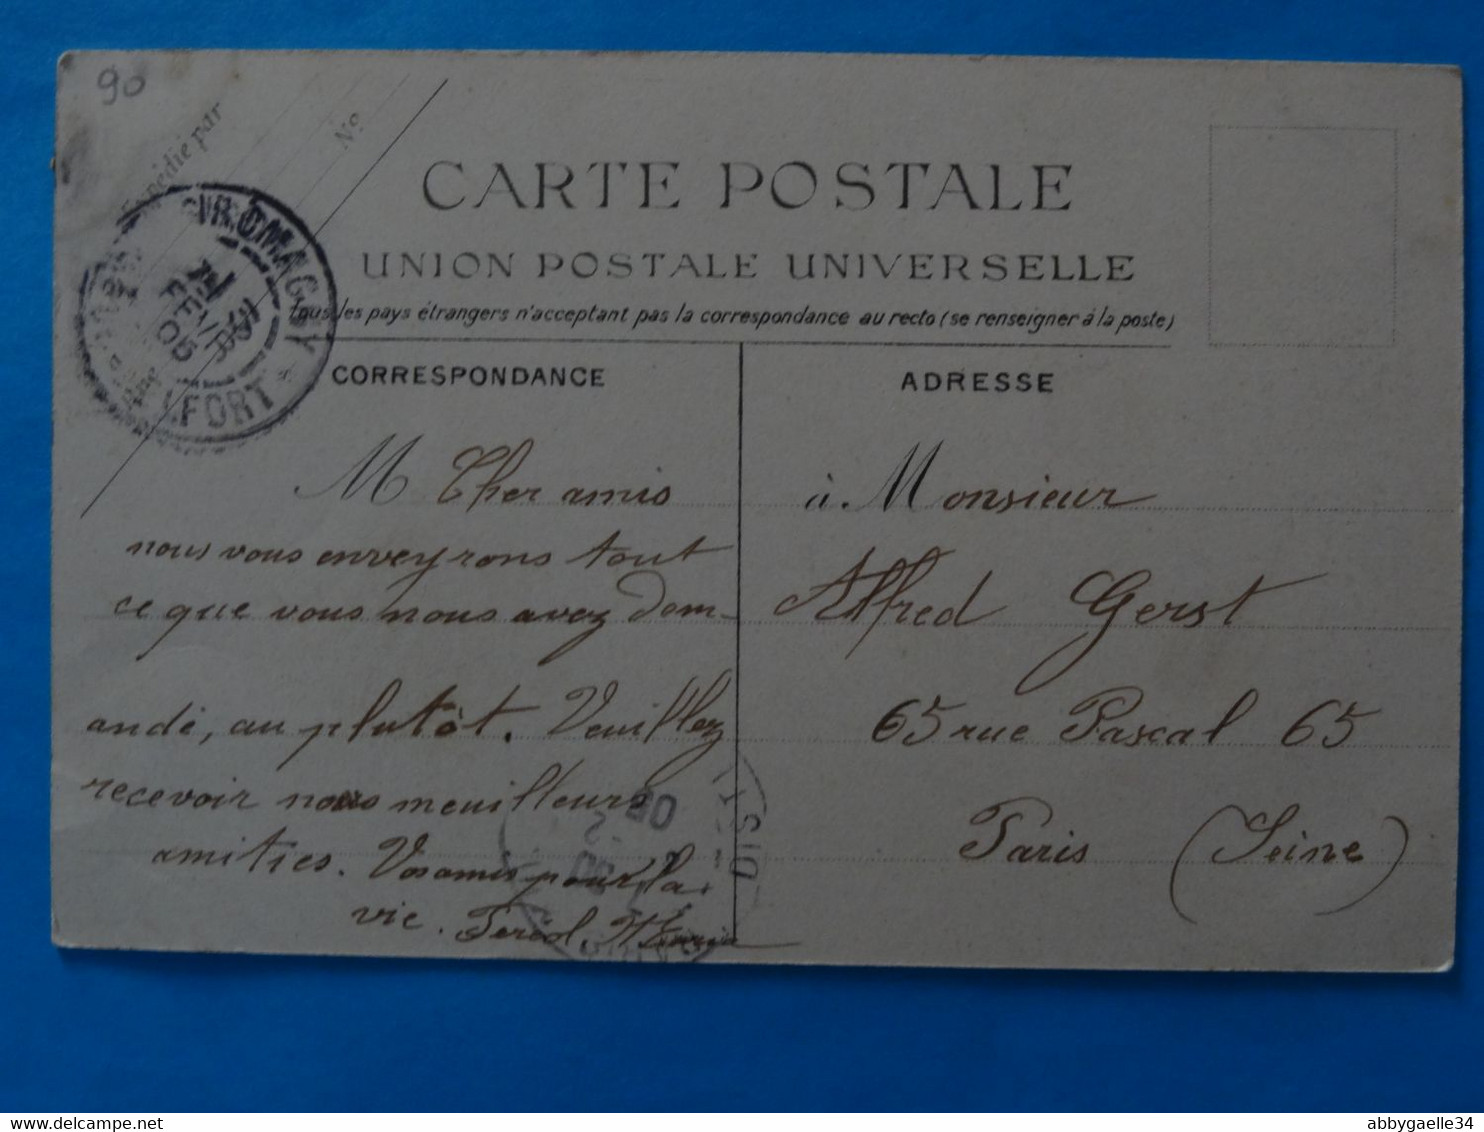 90
Expédié par
No
CARTE POSTALE
UNION POSTALE UNIVERSELLE
Tous les pays étrangers n'acceptent pas la correspondance au recto (se renseigner à la poste)
GIROMAGNY
FEVR
05
BELFORT
CORRESPONDANCE
M Cher amis
nous vous enveyrons tout
ce que vous nous avez dem-
andé, au plutôt. Veuillez
recevoir nous meuilleurs
amities. Vos amis pour la
vie.
ADRESSE
à Monsieur
Alfred Gerst
65 rue Pascal 65
Paris (Seine)
DIST
05
abbygaelle34
delcampe.net